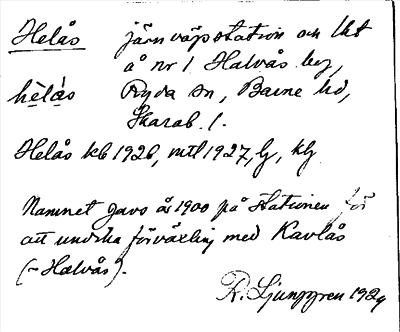 Helås järnvägsstation och lht
å nr 1 Halvås by,
hèlás Ryda sn, Barne hd,
Skarab. l.
Helås kb 1926, mtl 1927, lj, klj
Namnet gavs år 1900 på stationen för
att undvika förväxling med Kavlås
(~ Halvås).
R. Ljunggren 1929